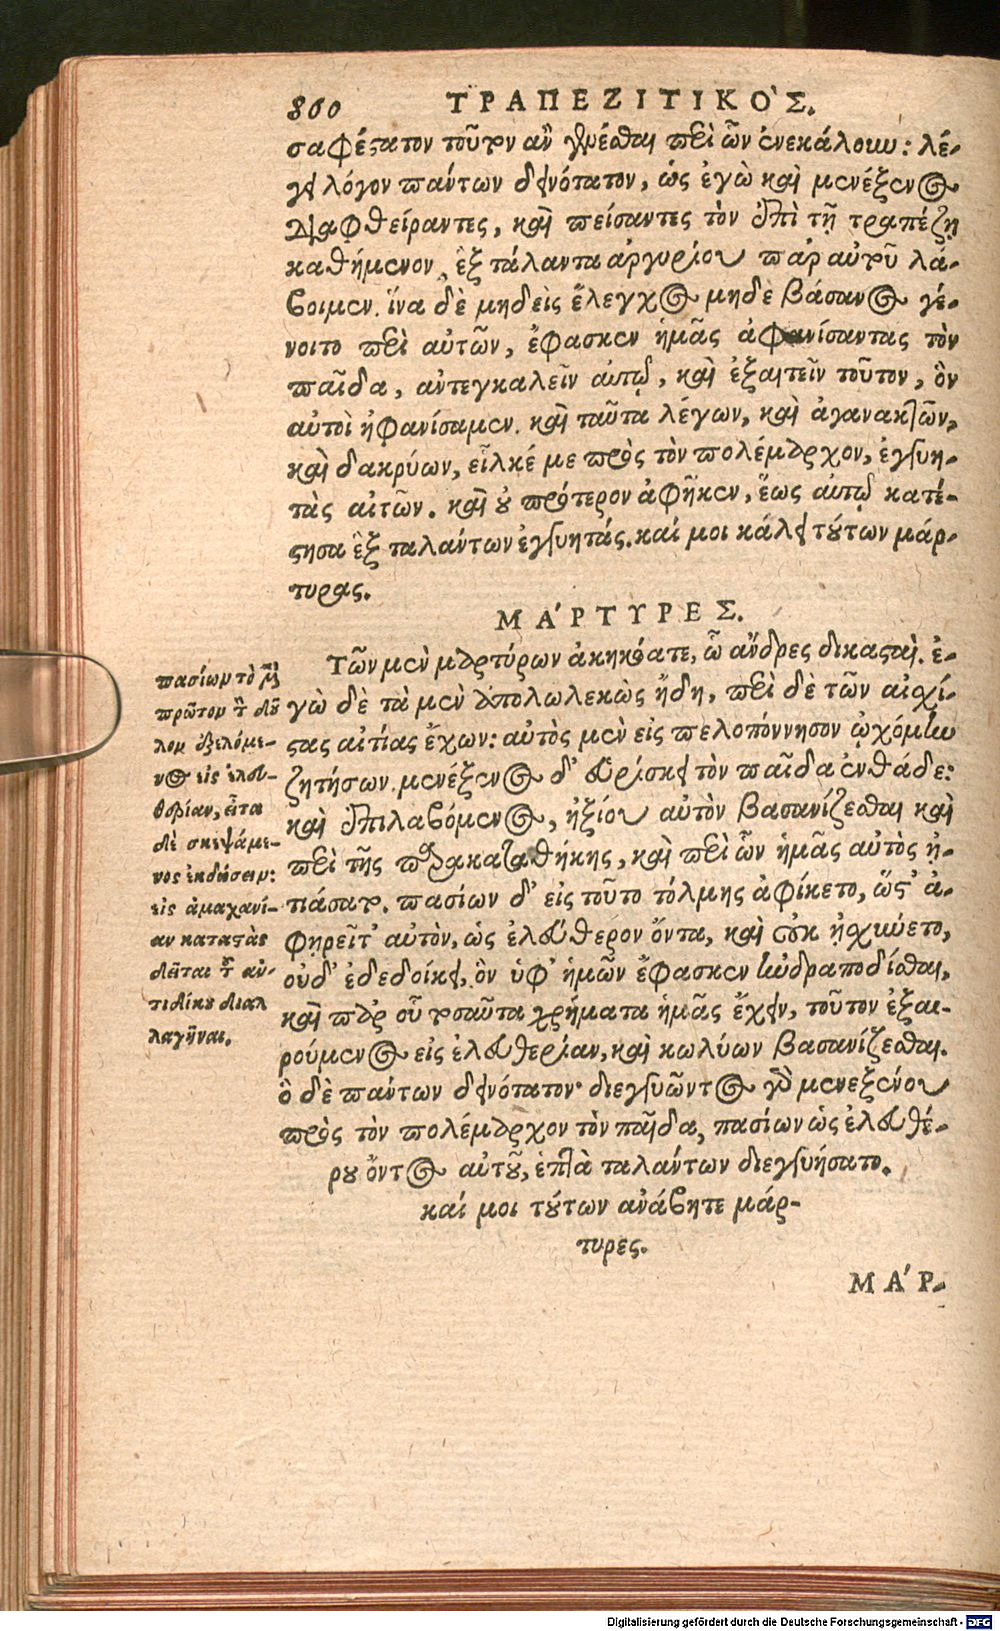 860 ΤΡΑΠΕΖΙΤΙΚΟ'Σ.
σαφέστατον τοῦτον ἂν γενέσθαι περὶ ὧν ἐνεκάλουν: λέ-
γει λόγον πάντων δεινότατον, ὡς ἐγὼ καὶ μενέξενος
διαφθείραντες, καὶ πείσαντες τὸν ἐπὶ τῇ τραπέζῃ
καθήμενον, ἓξ τάλαντα ἀργυρίου παρ αὐτοῦ λά-
βοιμεν. ἵνα δὲ μηδεὶς ἔλεγχος μηδὲ βάσανος γέ-
νοιτο περὶ αὐτῶν, ἔφασκεν ἡμᾶς ἀφανίσαντας τὸν
παῖδα, ἀντεγκαλεῖν αὐτῷ, καὶ ἐξαιτεῖν τοῦτον, ὃν
αὐτοὶ ἠφανίσαμεν. καὶ ταῦτα λέγων, καὶ ἀγανακτῶν,
καὶ δακρύων, εἷλκέ με πρὸς τὸν πολέμαρχον, ἐγγυη-
τὰς αἰτῶν. καὶ οὐ πρότερον ἀφῆκεν, ἕως αὐτῷ κατέ-
στησα ἓξ ταλάντων ἐγγυητάς. καί μοι κάλει τούτων μάρ-
τυρας.
ΜΑ'ΡΤΥΡΕΣ.
Τῶν μὲν μαρτύρων ἀκηκόατε, ὦ ἄνδρες δικασταὶ. ἐ-
γὼ δὲ τὰ μὲν ἀπολωλεκὼς ἤδη, περὶ δὲ τῶν αἰσχί-
στας αἰτίας ἔχων: αὐτὸς μὲν εἰς πελοπόννησον ᾠχόμην
ζητήσων. μενέξενος δ' εὑρίσκει τὸν παῖδα ἐνθάδε:
καὶ ἐπιλαβόμενος, ἠξίου αὐτὸν βασανίζεσθαι καὶ
περὶ τῆς παρακαταθήκης, καὶ περὶ ὧν ἡμᾶς αὐτὸς ᾐ-
τιάσατο. πασίων δ' εἰς τοῦτο τόλμης ἀφίκετο, ὥστ' ἀ-
φῃρεῖτ' αὐτὸν, ὡς ἐλεύθερον ὄντα, καὶ οὐκ ᾐσχύνετο,
οὐδ' ἐδεδοίκει, ὃν ὑφ' ἡμῶν ἔφασκεν ἠνδραποδίσθαι,
καὶ παρ οὗ τοσαῦτα χρήματα ἡμᾶς ἔχειν, τοῦτον ἐξαι-
ρούμενος εἰς ἐλευθερίαν, καὶ κωλύων βασανίζεσθαι.
ὃ δὲ πάντων δεινότατον· διεγγυῶντος γὰρ μενεξένου
πρὸς τὸν πολέμαρχον τὸν παῖδα, πασίων ὡς ἐλευθέ-
ρου ὄντος αὐτοῦ, ἑπτὰ ταλάντων διεγγυήσατο.
καί μοι τούτων ἀνάβητε μάρ-
τυρες.
ΜΑ'Ρ-
πασίων τὸ μὲν
πρῶτον τὸν δοῦ
λον ἐξελόμε-
νος εἰς ἐλευ-
θερίαν, εἶτα
δὲ σκεψάμε-
νος ἐκδώσειν:
εἰς ἀμαχανί-
αν καταστὰς
δεῖται τοῦ ἀν-
τιδίκου διαλ
λαγῆναι.
Digitalisierung gefördert durch die Deutsche Forschungsgemeinschaft - DFG